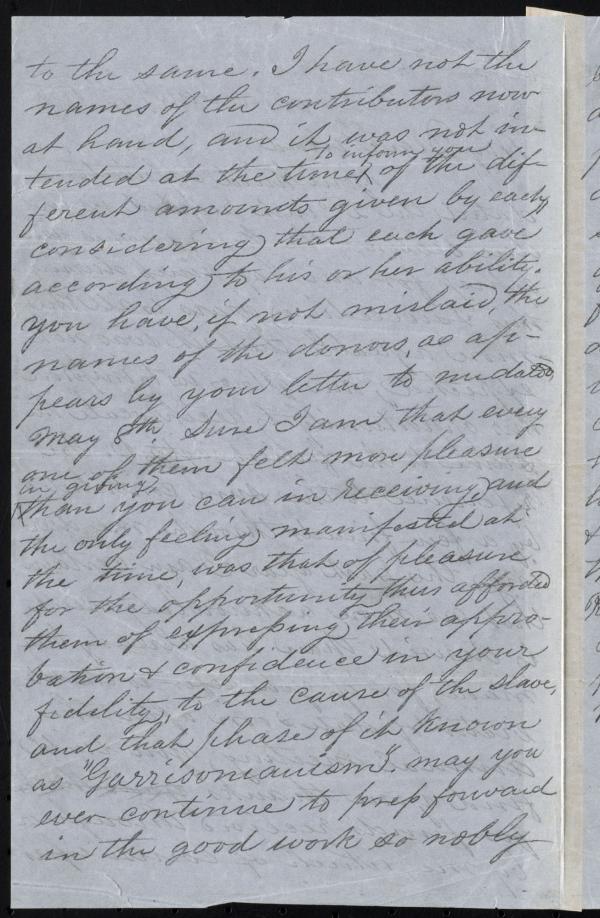 to the same. I have not the
names of the contributors now
at hand, and it was not in-
to inform you
tended at the time, of the dif-
ferent amounts given by each,
considering that each gave
according to his or her ability.
you have, if not mislaid, the
names of the donors, as ap-
pears by your letter to me dated,
may 8th. Sure I am that every
one of them felt more pleasure
in giving,
than you can in receiving, and
the only feeling manifested at
the time, was that of pleasure
for the opportunity thus afforded
them of expressing their appro-
bation & confidence in your
fidelity, to the cause of the slave,
and that phase of it known
as "Garrisonianism". may you
ever continue to press forward
in the good work so nobly